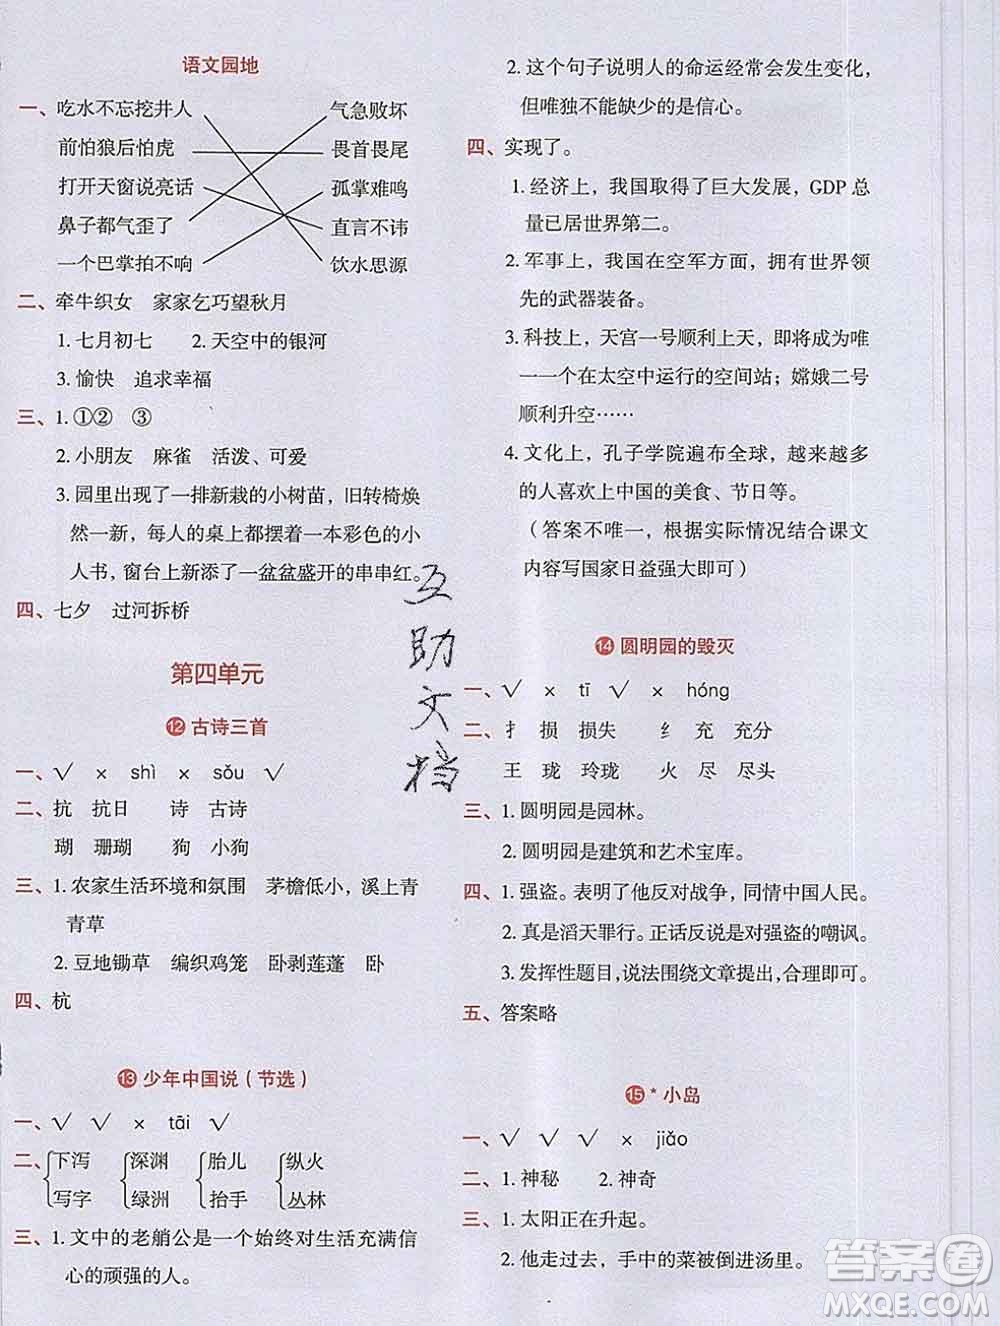 语文园地
一、吃水不忘挖井人 气急败坏
前怕狼后怕虎 畏首畏尾
打开天窗说亮话 孤掌难鸣
鼻子都气歪了 直言不讳
一个巴掌拍不响 饮水思源
二、牵牛织女 家家乞巧望秋月
1. 七月初七 2. 天空中的银河
3. 愉快 追求幸福
三、1. ①② ③
2. 小朋友 麻雀 活泼、可爱
3. 园里出现了一排新栽的小树苗，旧转椅焕
然一新，每人的桌上都摆着一本彩色的小
人书，窗台上新添了一盆盆盛开的串串红。
四、七夕 过河拆桥
第四单元
12 古诗三首
一、√ × shì × sǒu √
二、抗 抗日 诗 古诗
瑚 珊瑚 狗 小狗
三、1. 农家生活环境和氛围 茅檐低小，溪上青
青草
2. 豆地锄草 编织鸡笼 卧剥莲蓬 卧
四、杭
13 少年中国说（节选）
一、√ √ × tāi √
二、下泻 深渊 胎儿 纵火
写字 绿洲 抬手 丛林
三、1. 文中的老艄公是一个始终对生活充满信
心的顽强的人。
2. 这个句子说明人的命运经常会发生变化，
但唯独不能缺少的是信心。
四、实现了。
1. 经济上，我国取得了巨大发展，GDP 总
量已居世界第二。
2. 军事上，我国在空军方面，拥有世界领
先的武器装备。
3. 科技上，天宫一号顺利上天，即将成为唯
一一个在太空中运行的空间站；嫦娥二号
顺利升空……
4. 文化上，孔子学院遍布全球，越来越多
的人喜欢上中国的美食、节日等。
（答案不唯一，根据实际情况结合课文
内容写国家日益强大即可）
14 圆明园的毁灭
一、√ × tī √ × hóng
二、扌 损 损失 纟 充 充分
王 珑 玲珑 火 尽 尽头
三、1. 圆明园是园林。
2. 圆明园是建筑和艺术宝库。
四、1. 强盗。表明了他反对战争，同情中国人民。
2. 真是滔天罪行。正话反说是对强盗的嘲讽。
3. 发挥性题目，说法围绕文章提出，合理即可。
五、答案略
15 * 小岛
一、√ √ √ × jiǎo
二、1. 神秘 2. 神奇
三、1. 太阳正在升起。
2. 他走过去，手中的菜被倒进汤里。
互助文档
答案圈
MXQE.COM